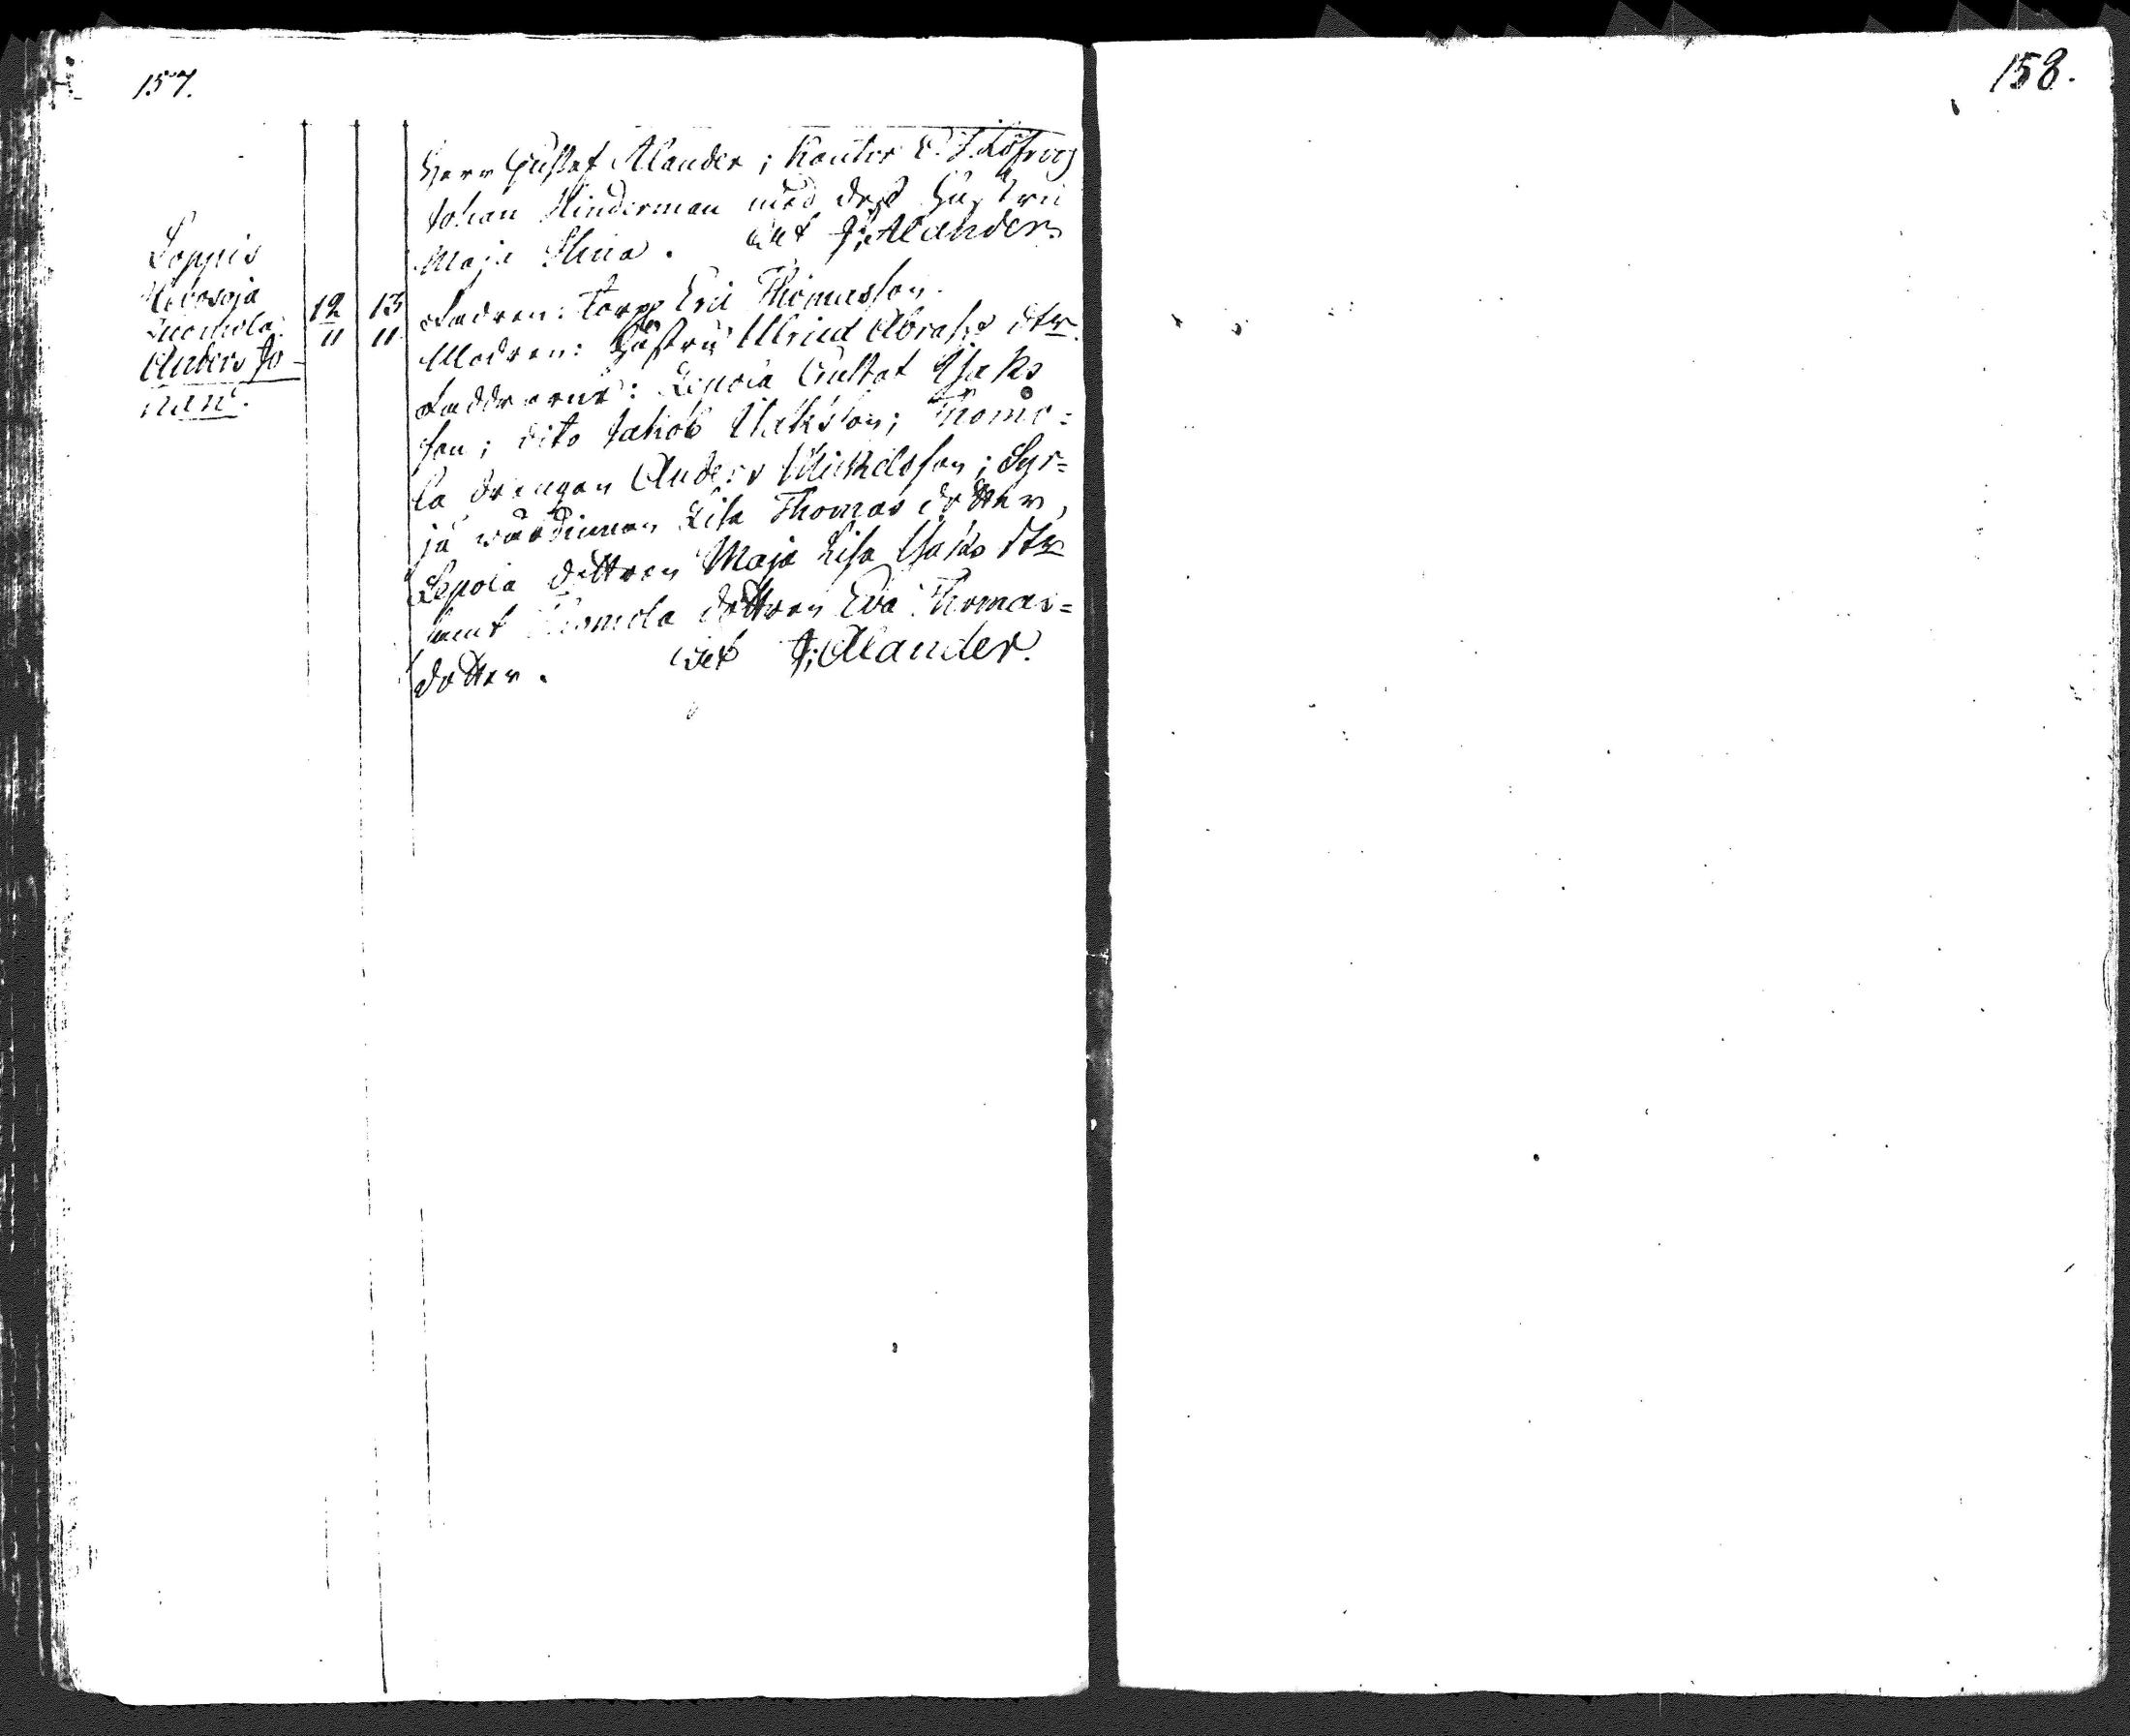 157.
158.
Herr Gustaf Alander; Kantor C. J. Löfroos
Johan Hinderman med dess Hustru
Maja Stina. Wet J. Alander.
Loppis
Suomela
Anders Jo-
nan.
12 13
11 11
Fadren: Torp. Eric Thomasson.
Modren: Hustru Ulrica Abrah.s dtr.
Faddrarne: Lepola Gustaf Isaks
son; dito Jakob Isaksson; Thomo=
la drängen Anders Mickelsson; Syr=
jä wärdinnan Lisa Thomas dotter,
Lepola dottren Maja Lisa Isaks dtr
samt dottren Eva Thomas=
dotter. Wet J. Alander.